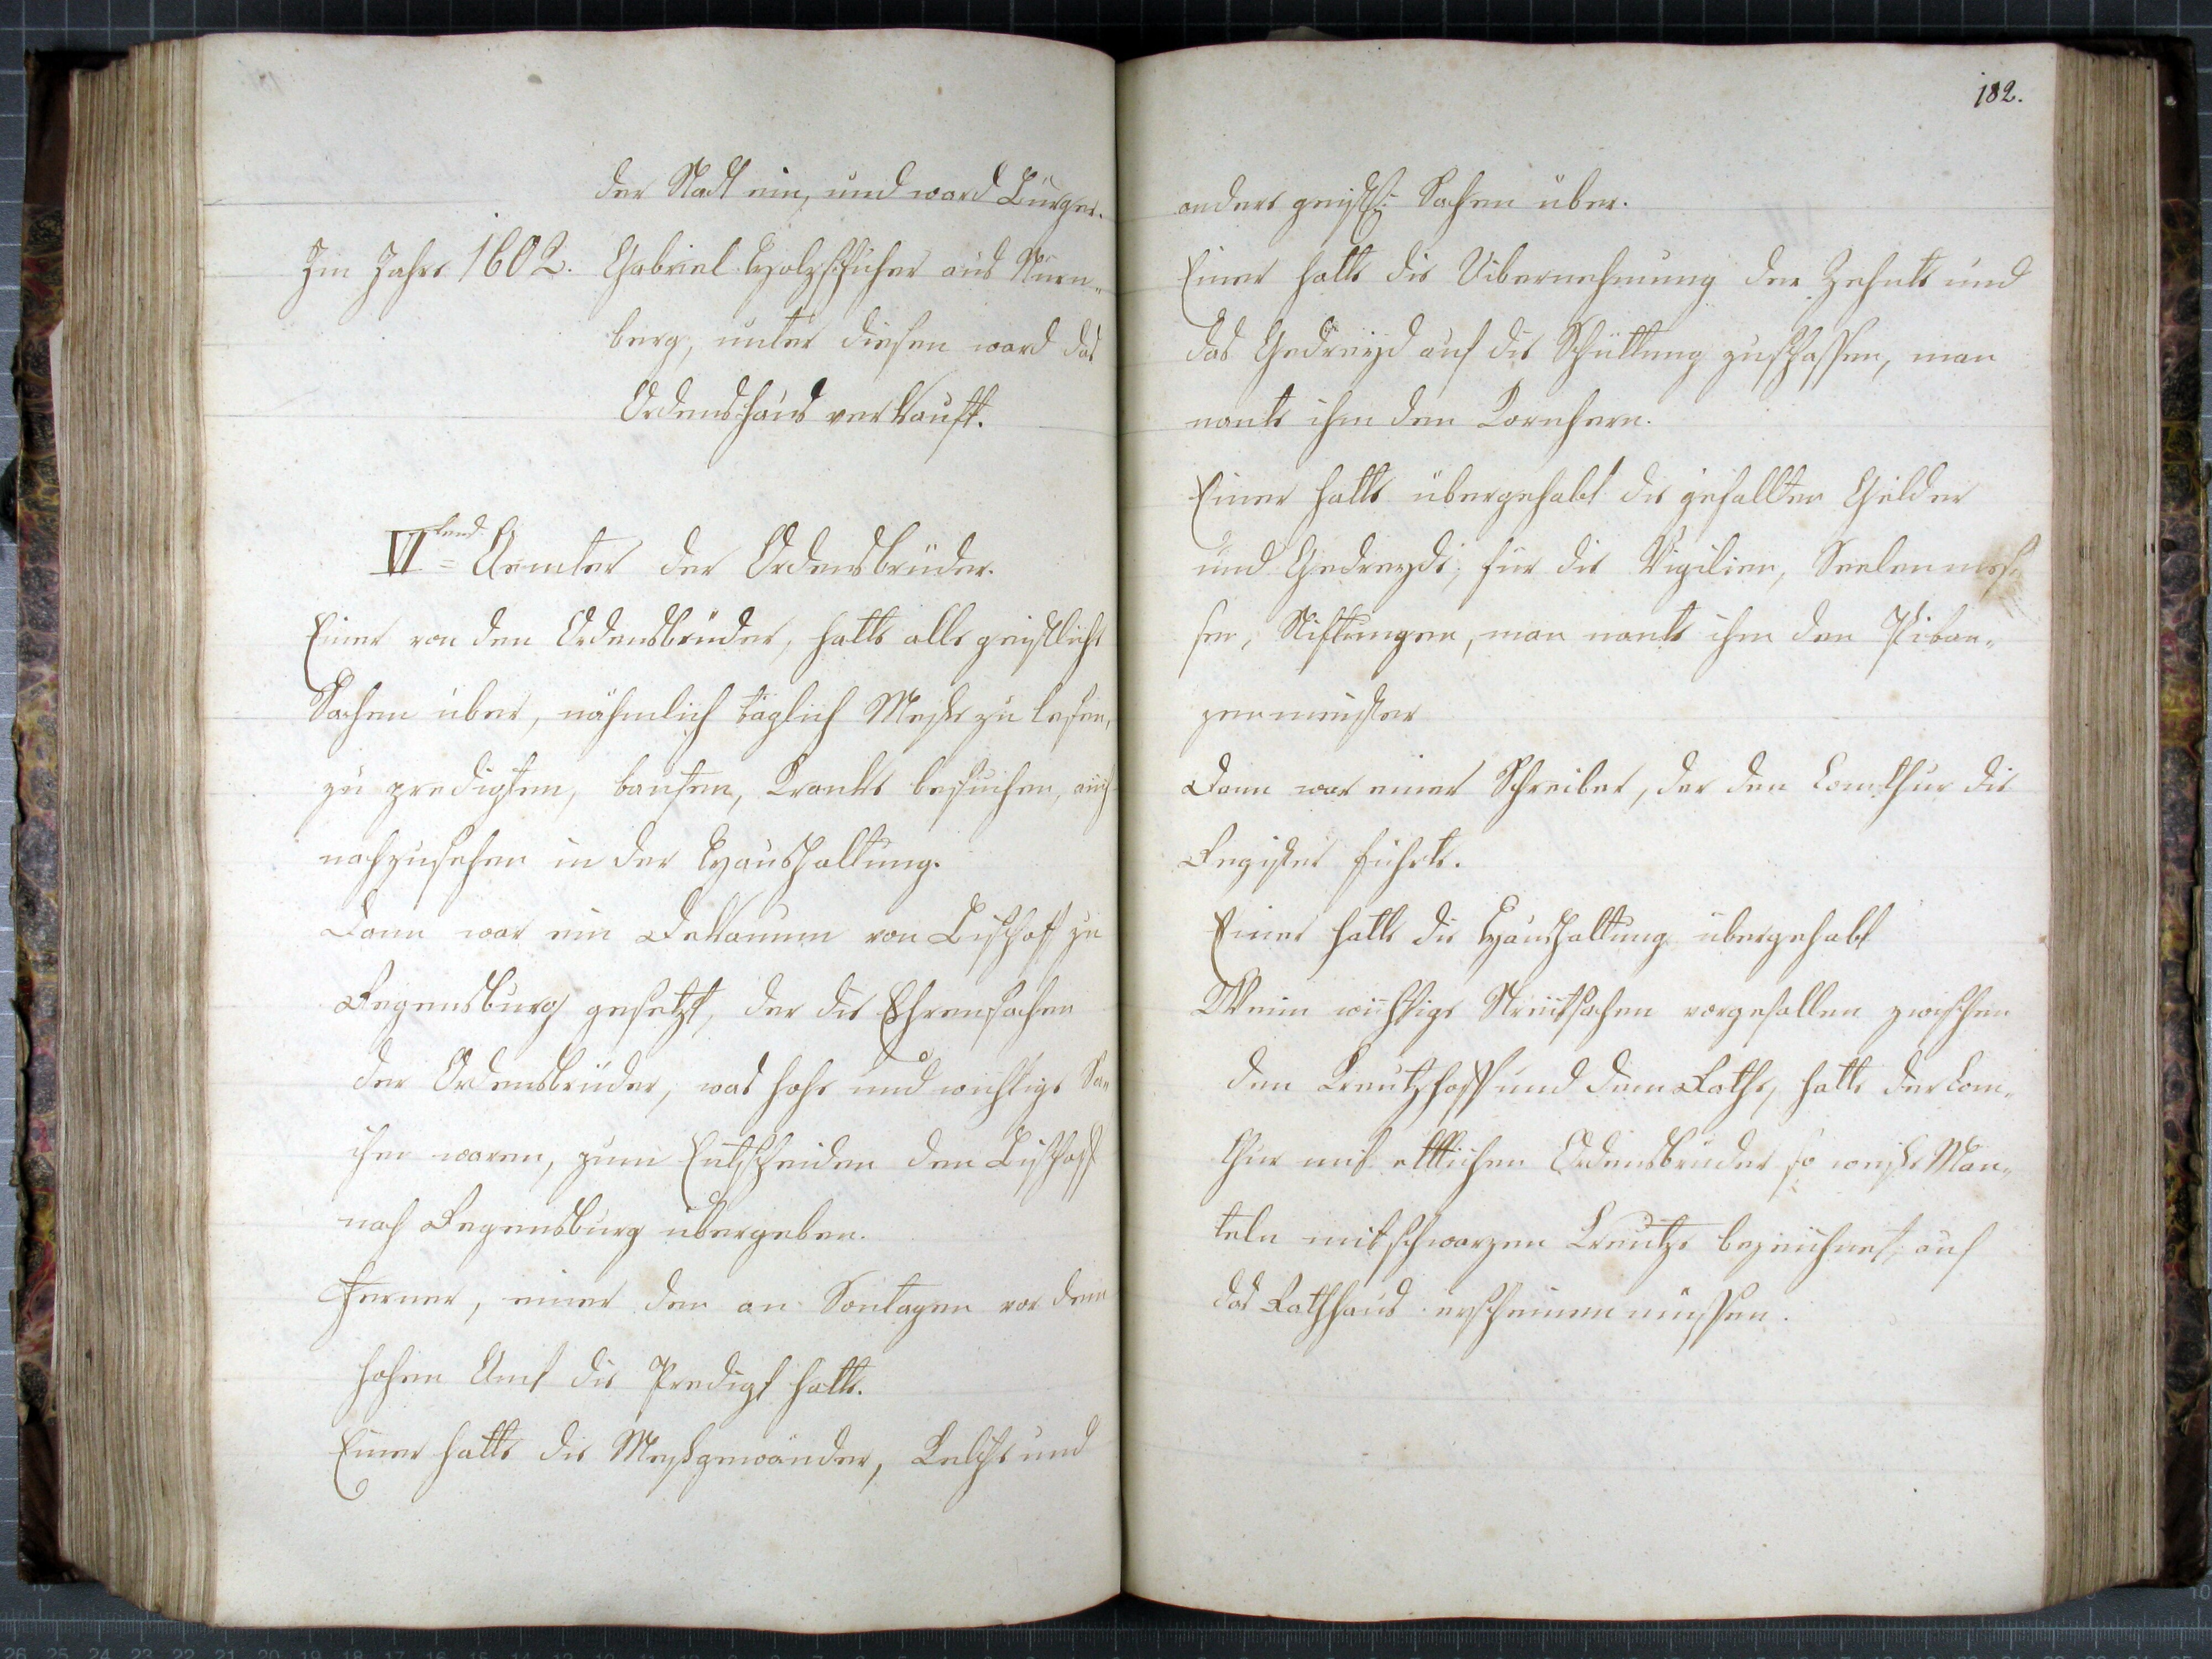 der Stadt ein, und ward Bürger.
Im Jahre 1602. Gabriel Holzschuher aus Nürn„
berg, unter diesen ward das
Ordenshaus verkauft.
VI tens= Aemter der Ordensbrüder.
Einer von den Ordensbrüder, hatte alle geistliche
Sachen über, nähmlich täglich Messe zu lesen,
zu predigten, taufen, Kranke besuchen, auch
nachzusehen in der Haushaltung.
Dann war ein Dekanum von Bischoff zu
Regensburg gesetzt, der die Ehrensachen
der Ordensbrüder, was hohe und wichtige Sa„
chen waren, zum Entscheiden den Bischoff
nach Regensburg übergeben.
Ferner, einer den an Sontagen vor dem
hohen Amt die Predigt hatte.
Einer hatte die Meßgewänder, Kelche und
182.
andere geistl: Sachen über.
Einer hatte die Uibernehmung der Zehnte und
das Gedreyd auf die Schüttung zuschaffen, man
nante ihm den Kornhern.
Einer hatte übergehabt die gefallten Gelder
und Gedreyde, für die Vigilien, Seelenmes„
sen, Stiftungen, man nante ihm den Pitan„
zenmeister
Dann war einer Schreiber, der den Comthur die
Register führte.
Einer hatte die Haushaltung übergehabt
Wenn wichtige Streitsachen vorgefallen zwischen
den Kreutzhoff und dem Rathe, hatte der Com„
thur mit ettlichen Ordensbrüder so weiße Män„
teln mit schwarzen Kreutze bezeichnet, auf
das Rathhaus erscheinen müssen.